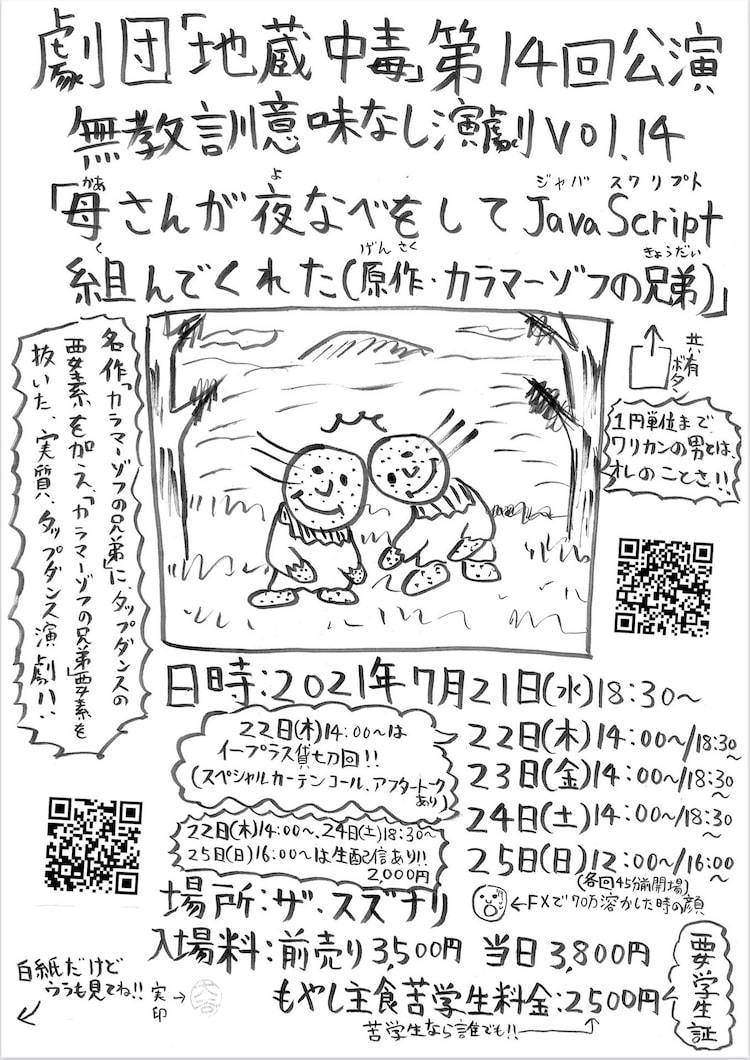 劇団「地蔵中毒」第14回公演
無教訓意味なし演劇vol.14
かあ よ ジャバ スクリプト
「母さんが夜なべをしてJavaScript
く げんさく きょうだい
組んでくれた(原作・カラマーゾフの兄弟)」
名作「カラマーゾフの兄弟」に、タップダンスの
要素を加え、「カラマーゾフの兄弟」要素を
抜いた、実質、タップダンス演劇!!
共有
ボタン
1円単位まで
ワリカンの男とは、
オレのことさ!!
日時:2021年7月21日(水)18:30~
22日(木)14:00~/18:30~
23日(金)14:00~/18:30~
24日(土)14:00~/18:30~
25日(日)12:00~/16:00~
(各回45分前開場)
22日(木)14:00~は
イープラス貸切回!!
(スペシャルカーテンコール、アフタートーク
あり)
22日(木)14:00~、24日(土)18:30~
25日(日)16:00~は生配信あり!!
2,000円
←FXで70万溶かした時の顔
場所:ザ・スズナリ
入場料:前売り3,500円 当日3,800円
もやし主食苦学生料金:2500円
要学生証
苦学生なら誰でも!!
白紙だけど
ウラも見てね!!
実印→